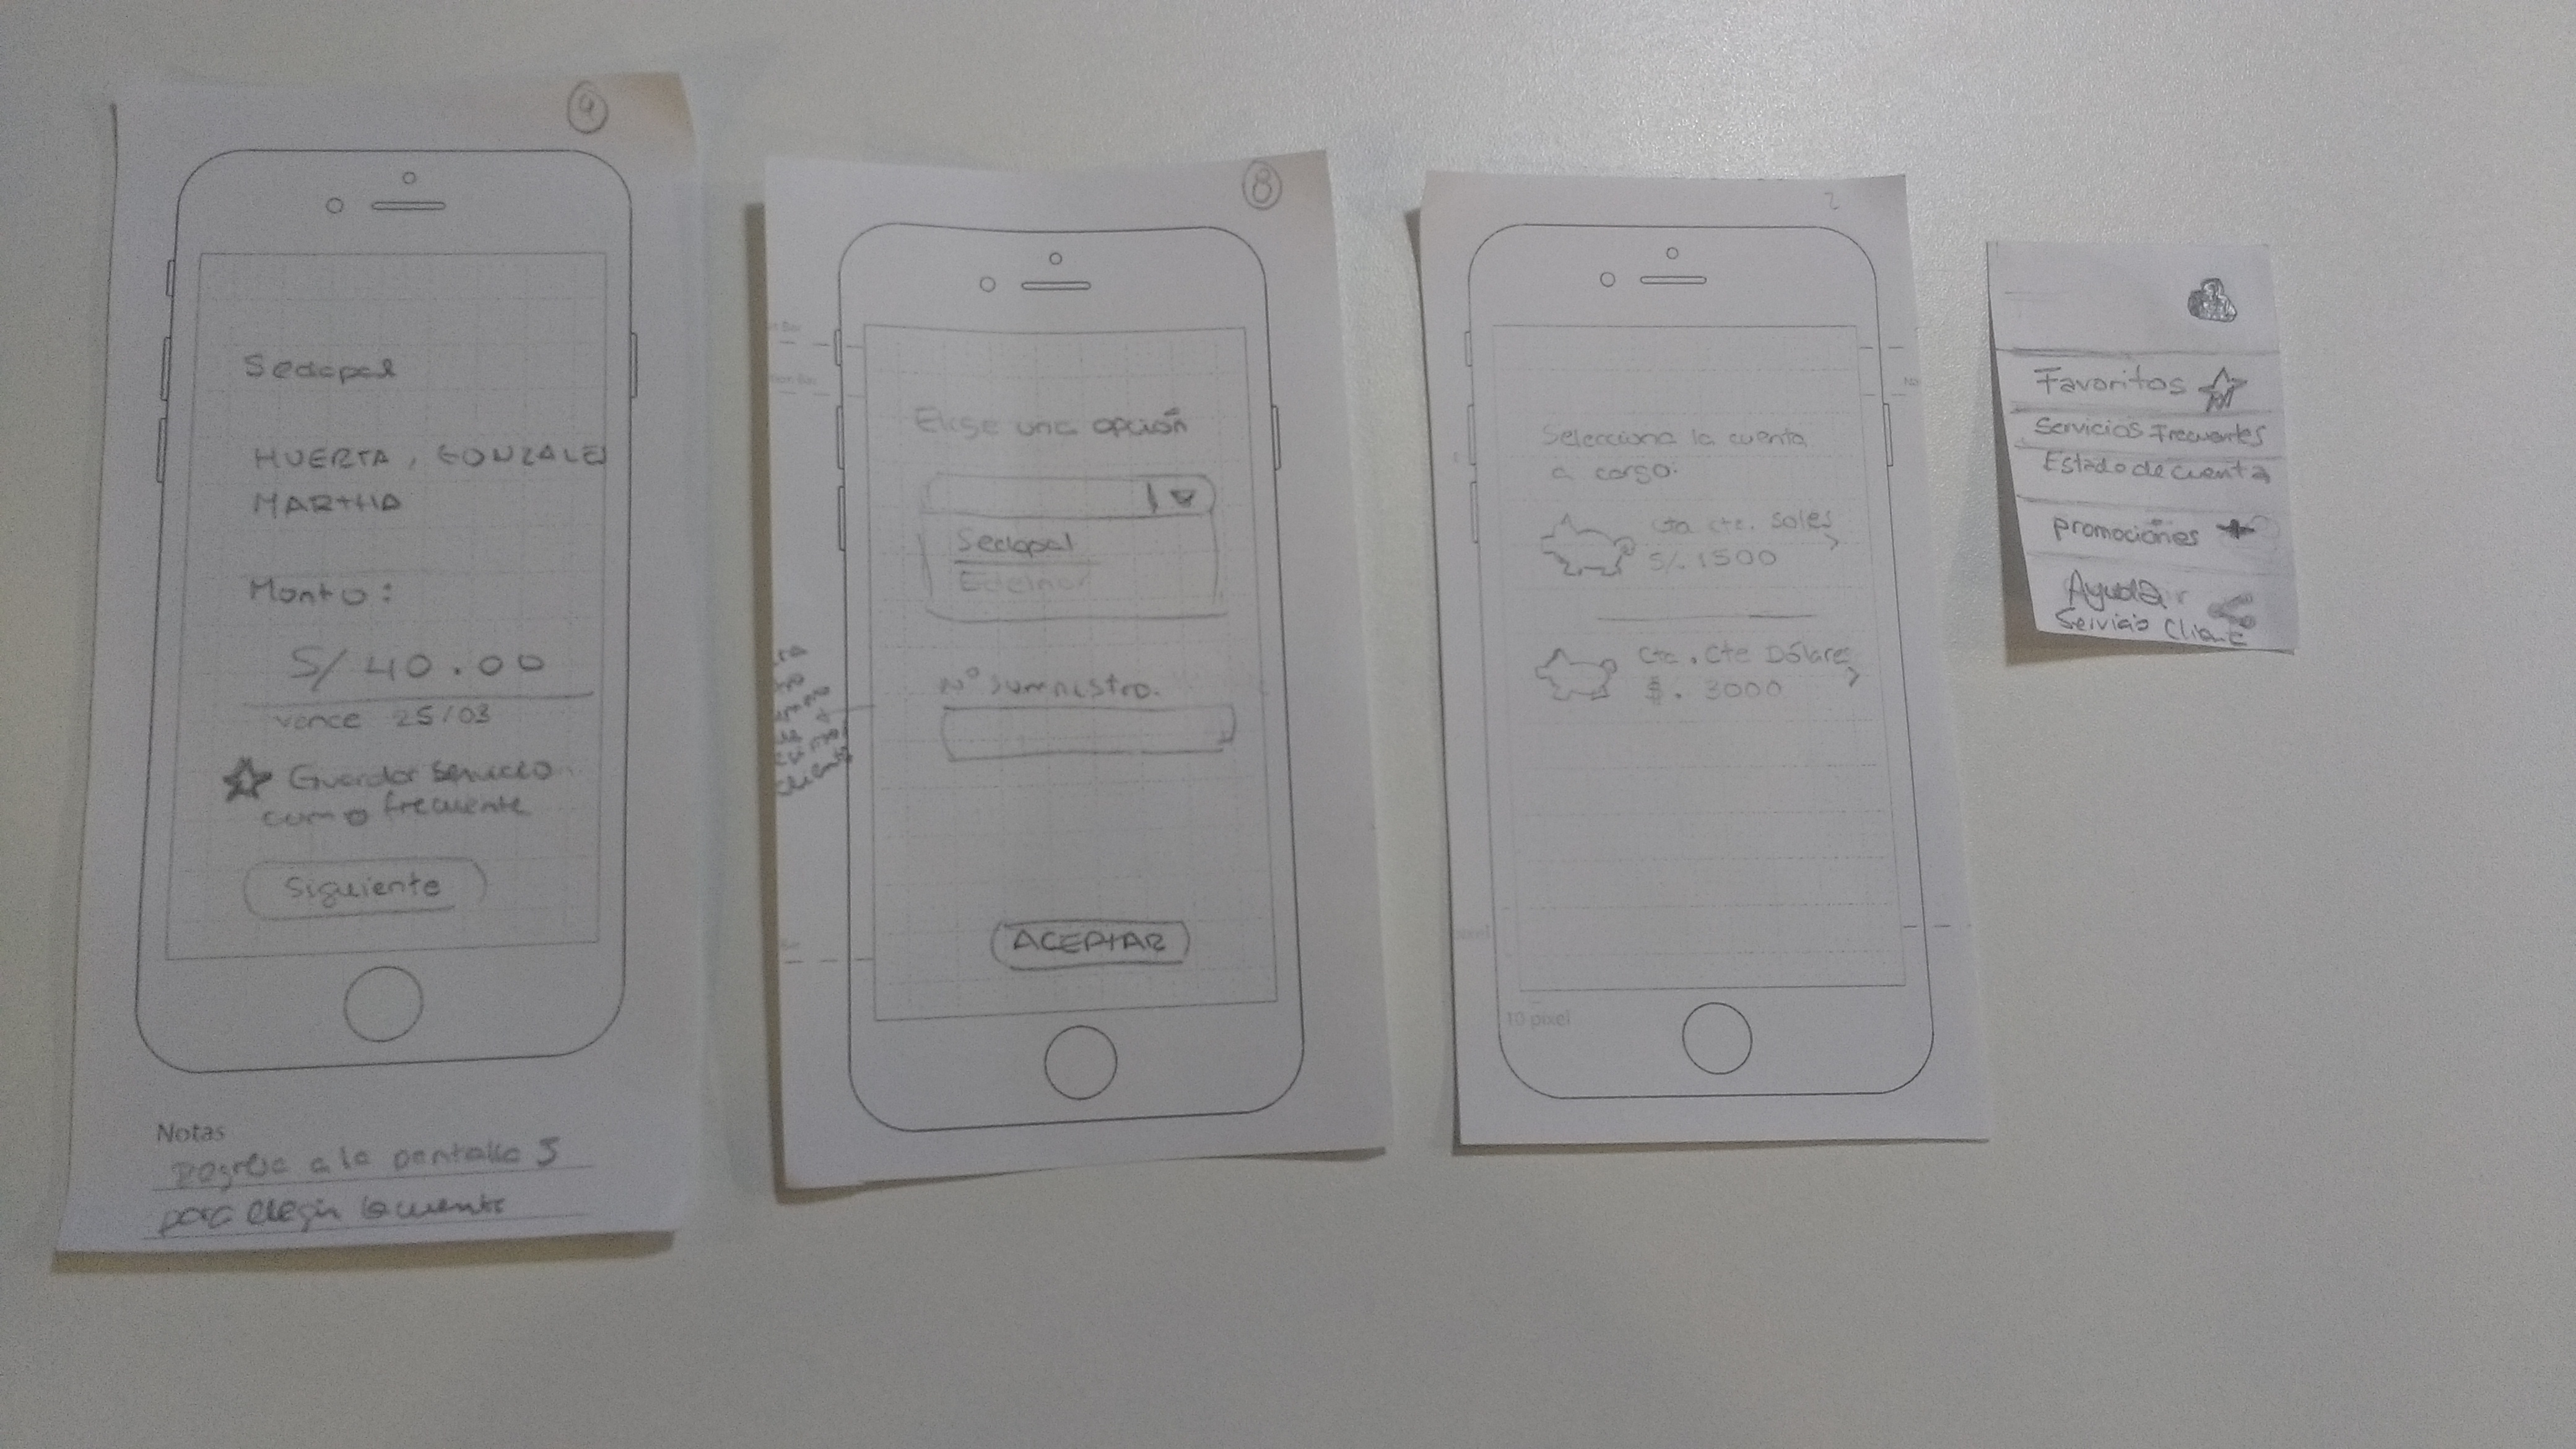 9
Sedapal
HUERTA, GONZALES
MARTHA
Monto:
S/ 40.00
vence 25/03
Guardar servicio
como frecuente
Siguiente
Notas
Regresa a la pantalla 5
para elegir la cuenta
8
Elige una opción
Sedapal
Edelnor
N° suministro.
ACEPTAR
2
Selecciona la cuenta
a cargo:
Cta cte. Soles
S/. 1500
>
Cta. Cte Dólares
$. 3000
>
10 pixel
Favoritos
Servicios Frecuentes
Estado de cuenta
promociones
Ayuda
Servicio Cliente